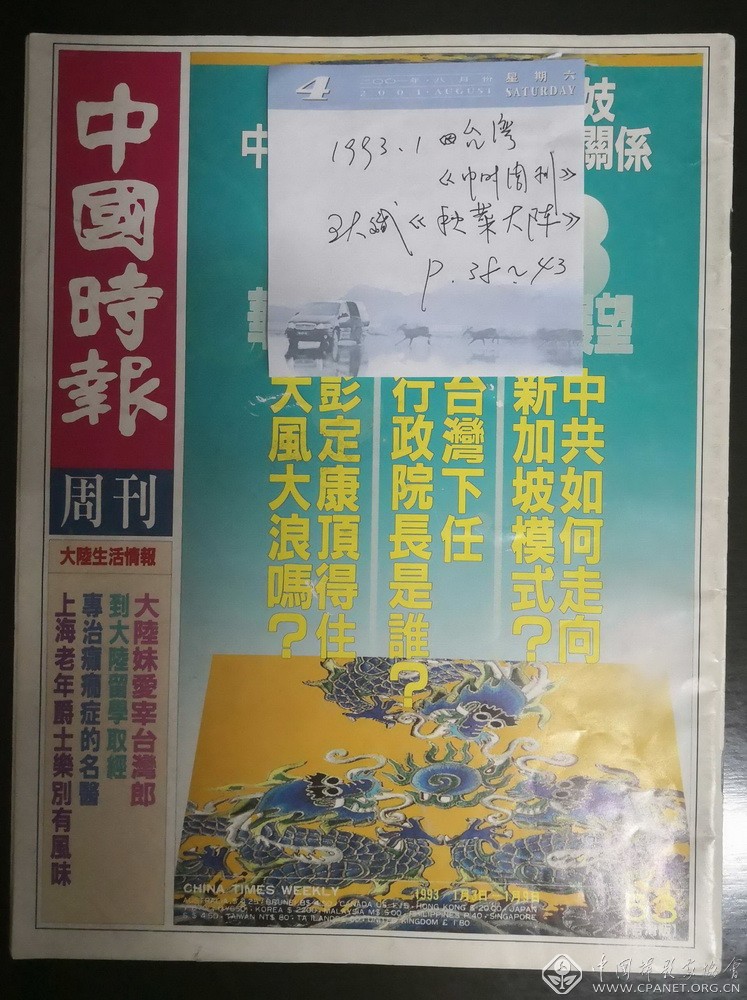 中國時報
周刊
大陸生活情報
大陸妹愛宰台灣郎
到大陸留學取經
專治癲癇症的名醫
上海老年爵士樂別有風味
4
二〇〇一年·八月
星期六
2001·AUGUST
SATURDAY
1993.1 台灣
《中时周刊》
《秋葉大阵》
P.38~43
妓
中
關係
望
中共如何走向
新加坡模式？
台灣下任
行政院長是誰？
彭定康頂得住
大風大浪嗎？
CHINA TIMES WEEKLY
1993 1月3日-1月9日
CANADA US HONG KONG $ 20.00/JAPAN
KOREA $ 2200/MALAYSIA M$ 5.00 PHILIPPINES P.40·SINGAPORE
TAIWAN NT$ 80 UNITED KINGDOM £ 1.80
53
中国摄影家协会
WWW.CPANET.ORG.CN